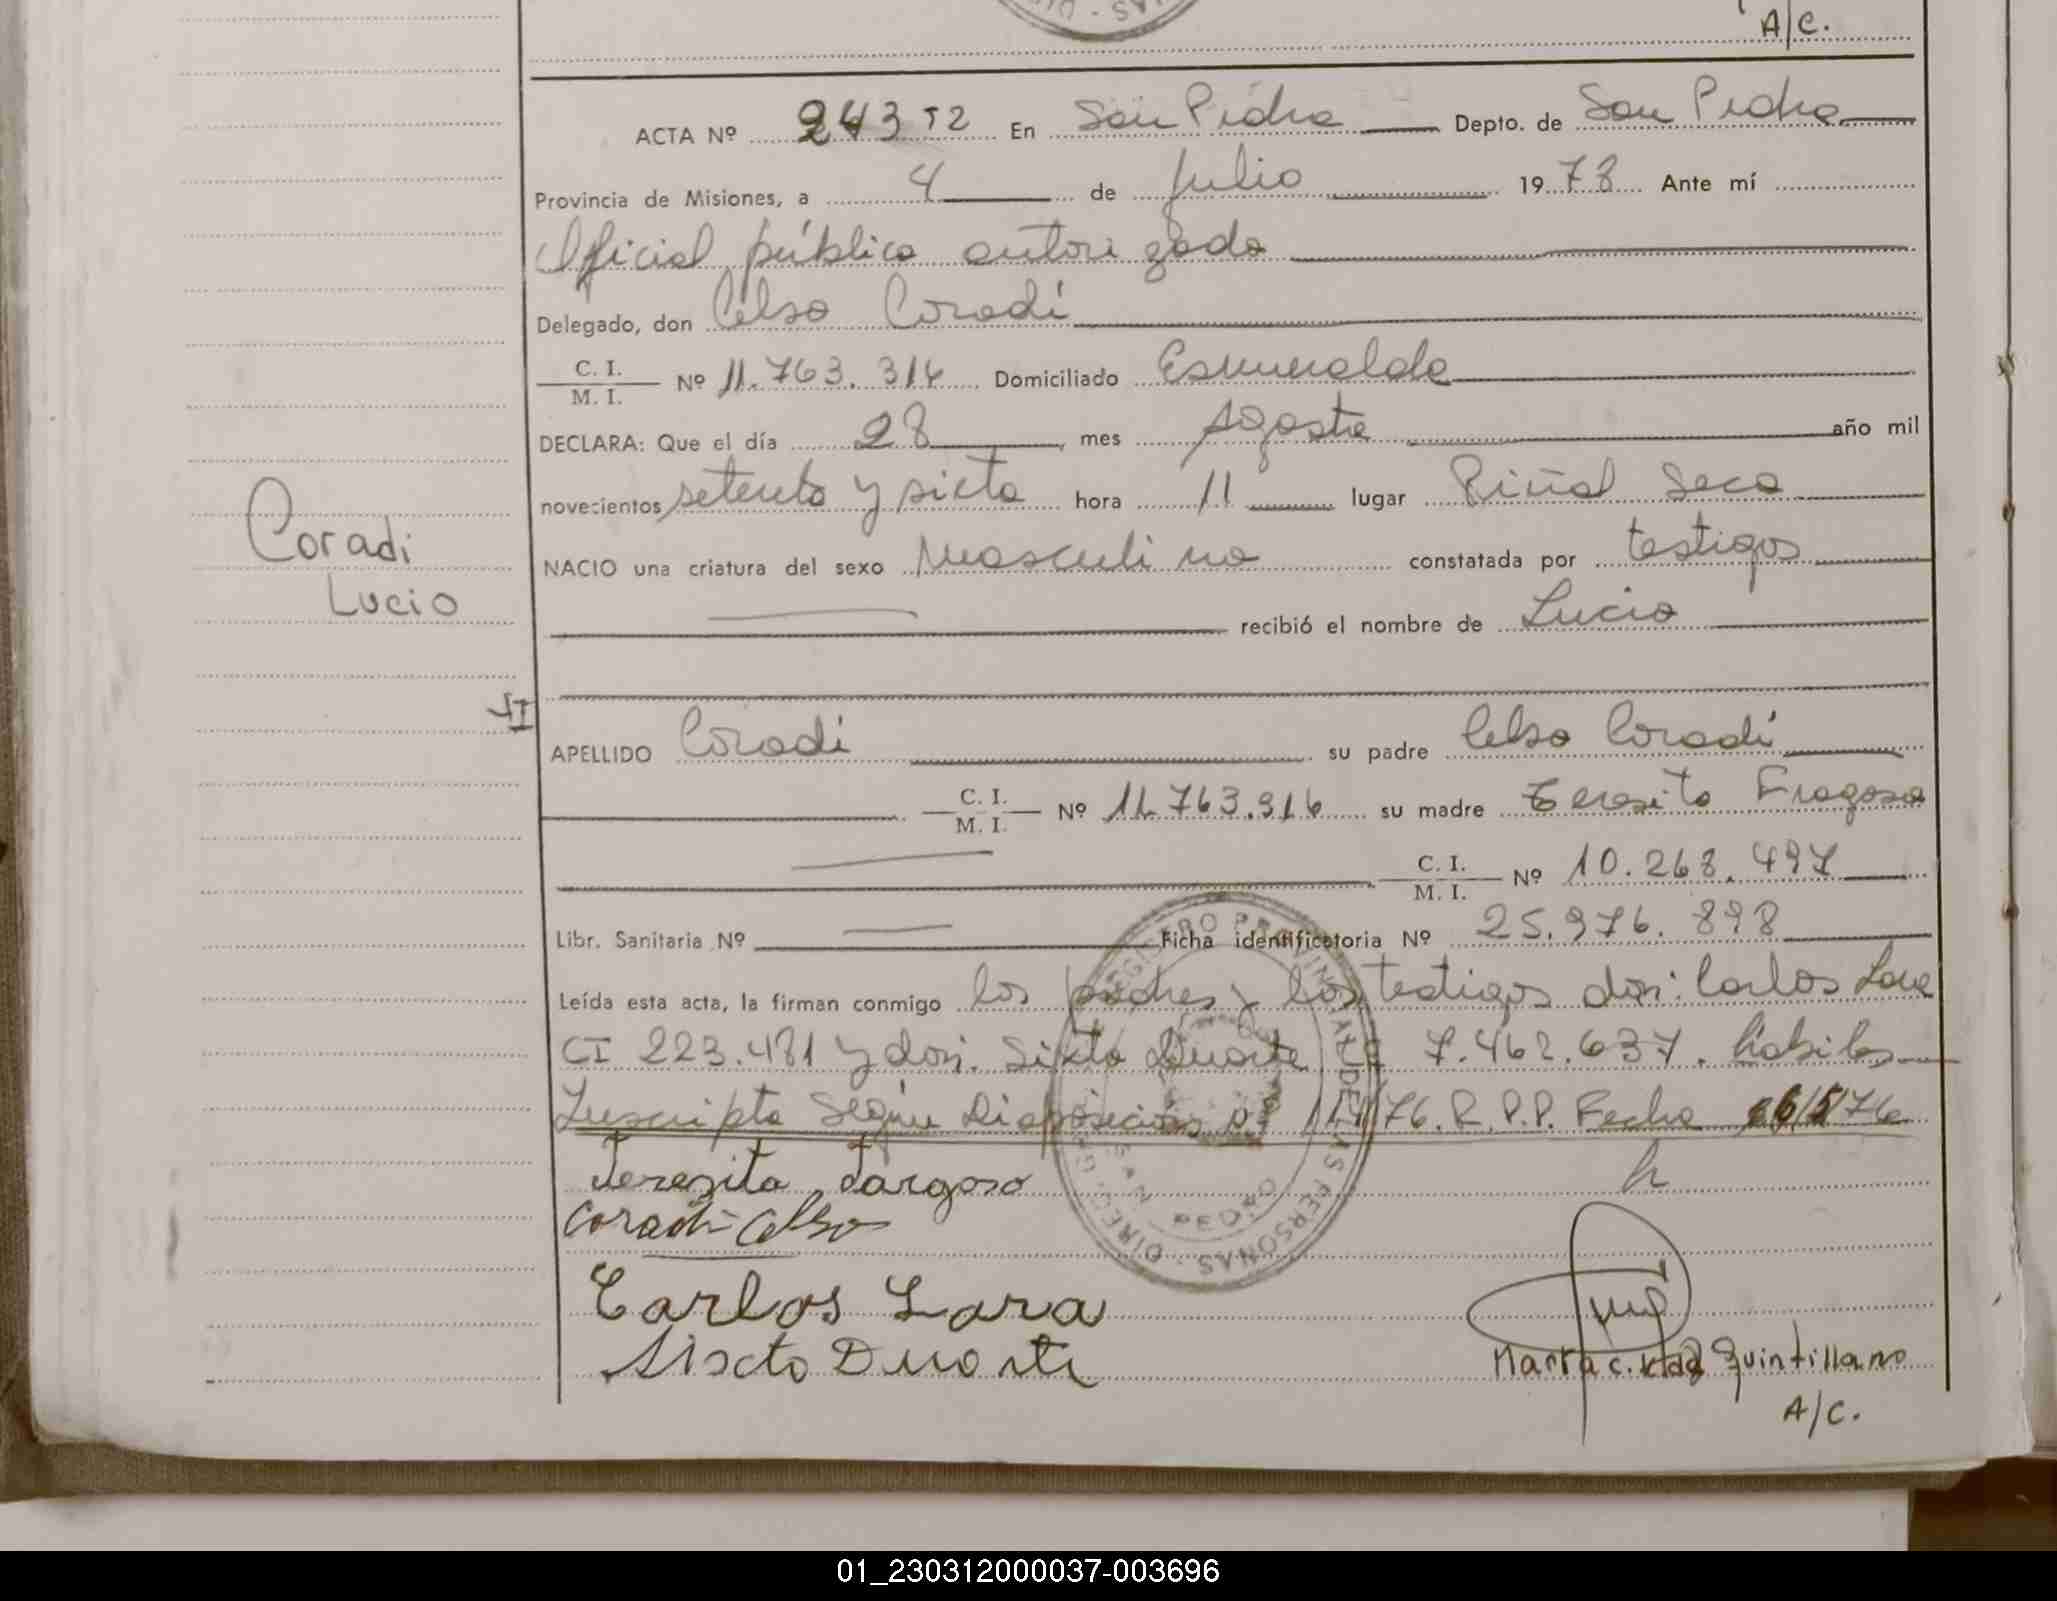 A/C.
ACTA Nº 243 T2 En San Pedro Depto. de San Pedro
Provincia de Misiones, a 4 de Julio 1978 Ante mí
Oficial público autorizado
Delegado, don Celso Coradi
C. I.
M. I. Nº 11.763.316 Domiciliado Esmeralda
DECLARA: Que el día 28 mes Agosto año mil
novecientos setenta y siete hora 11 lugar Piñal Seco
Coradi
Lucio
NACIO una criatura del sexo Masculino constatada por testigos
recibió el nombre de Lucio
APELLIDO Coradi su padre Celso Coradi
C. I.
M. I. Nº 11.763.316 su madre Teresita Fragoso
C. I.
M. I. Nº 10.268.497
Libr. Sanitaria Nº Ficha identificatoria Nº 25.976.898
Leída esta acta, la firman conmigo los padres y los testigos don: Carlos Lara
CI 223.481 y don. Sixto Duarte 7.462.637. habiles
Inscripto Según Disposición 76. R.P.P. Fecha
Terezita Fargoso
Coradi Celso
Carlos Lara
Sixcto Duarte
Marta C. Quintillano
A/C.
REGISTRO PROVINCIAL DE LAS PERSONAS
SAN PEDRO
01_230312000037-003696